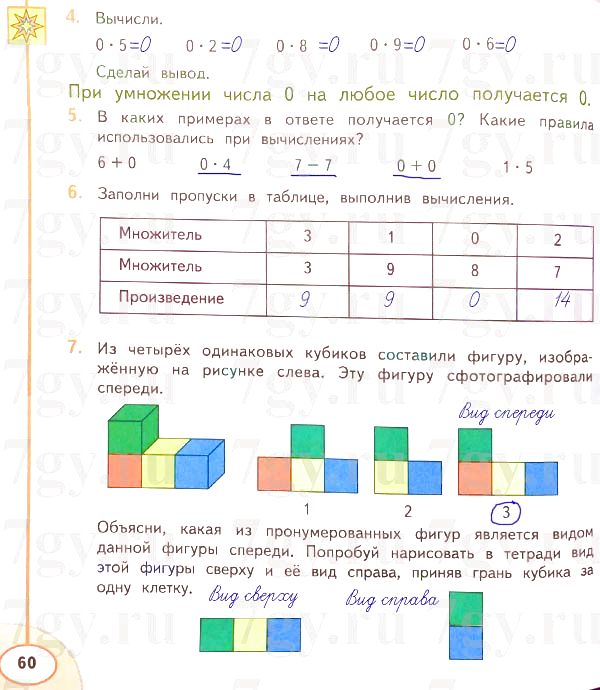 4. Вычисли.
0 · 5=0 0 · 2=0 0 · 8 =0 0 · 9=0 0 · 6=0
Сделай вывод.
При умножении числа 0 на любое число получается 0.
5. В каких примерах в ответе получается 0? Какие правила
использовались при вычислениях?
6 + 0 0 · 4 7 − 7 0 + 0 1 · 5
6. Заполни пропуски в таблице, выполнив вычисления.
Множитель 3 1 0 2
Множитель 3 9 8 7
Произведение 9 9 0 14
7. Из четырёх одинаковых кубиков составили фигуру, изобра-
жённую на рисунке слева. Эту фигуру сфотографировали
спереди.
Вид спереди
1 2 3
Объясни, какая из пронумерованных фигур является видом
данной фигуры спереди. Попробуй нарисовать в тетради вид
этой фигуры сверху и её вид справа, приняв грань кубика за
одну клетку.
Вид сверху Вид справа
60
7gy.ru